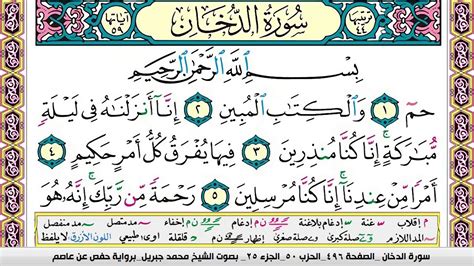 ترتيبها ٤٤ سُورَةُ الدُّخَانِ آياتها ٥٩
بِسْمِ ٱللَّهِ ٱلرَّحْمَٰنِ ٱلرَّحِيمِ
حمٓ ١ وَٱلْكِتَٰبِ ٱلْمُبِينِ ٢ إِنَّآ أَنزَلْنَٰهُ فِى لَيْلَةٍ
مُّبَٰرَكَةٍ إِنَّا كُنَّا مُنذِرِينَ ٣ فِيهَا يُفْرَقُ كُلُّ أَمْرٍ حَكِيمٍ ٤
أَمْرًا مِّنْ عِندِنَآ إِنَّا كُنَّا مُرْسِلِينَ ٥ رَحْمَةً مِّن رَّبِّكَ إِنَّهُۥ هُوَ
م إقلاب غنة إدغام بلاغنة إدغام إخفاء مد متصل مد منفصل
المد اللازم صلة كبرى صلة صغرى قلقلة اوى: طبيعي اللون الأزرق: لا يلفظ
سورة الدخان _ الصفحة ٤٩٦ _ الحزب ٥٠ _ الجزء ٢٥ _ بصوت الشيخ محمد جبريل _ برواية حفص عن عاصم